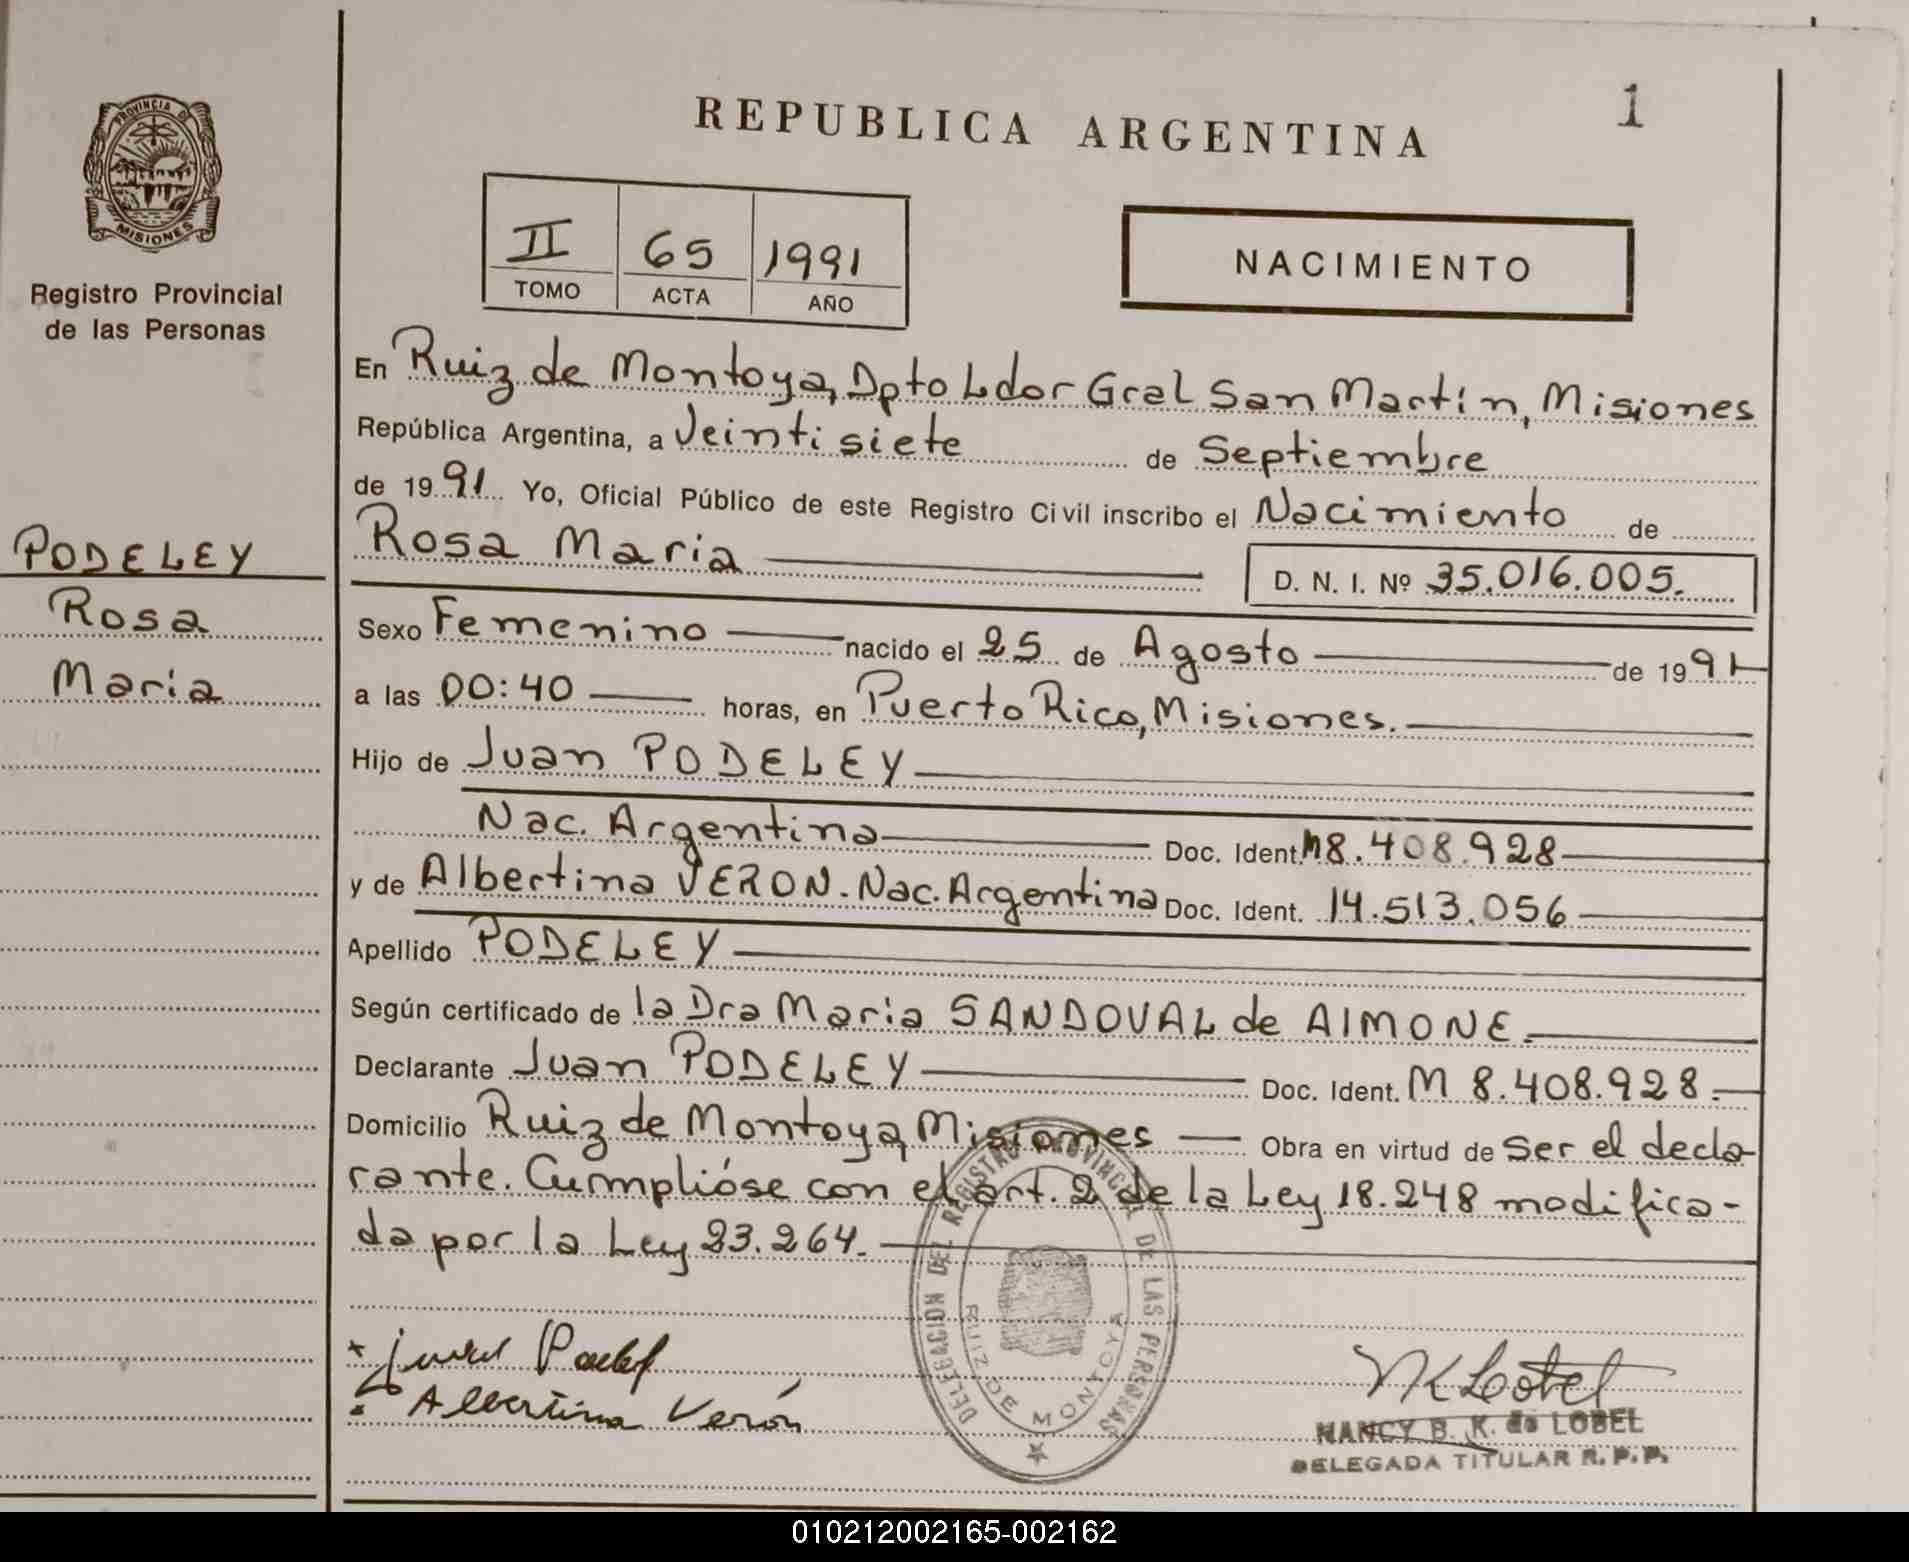 PROVINCIA DE
MISIONES
Registro Provincial
de las Personas
PODELEY
Rosa
María
REPUBLICA ARGENTINA
1
II 65 1991
TOMO ACTA AÑO
NACIMIENTO
En Ruiz de Montoya, Dpto Ldor Gral San Martín, Misiones
República Argentina, a Veintisiete de Septiembre
de 1991 Yo, Oficial Público de este Registro Civil inscribo el Nacimiento de
Rosa María D. N. I. Nº 35.016.005.
Sexo Femenino nacido el 25 de Agosto de 1991
a las 00:40 horas, en Puerto Rico, Misiones.
Hijo de Juan PODELEY
Nac. Argentina Doc. Ident. M8.408.928
y de Albertina VERON. Nac. Argentina Doc. Ident. 14.513.056
Apellido PODELEY
Según certificado de la Dra María SANDOVAL de AIMONE.
Declarante Juan PODELEY Doc. Ident. M 8.408.928.
Domicilio Ruiz de Montoya, Misiones Obra en virtud de Ser el decla-
rante. Cumplióse con el art. 2 de la Ley 18.248 modifica-
da por la Ley 23.264.
DELEGACION DEL REGISTRO PROVINCIAL DE LAS PERSONAS
RUIZ DE MONTOYA
Albertina Verón
NANCY B. K. de LOBEL
DELEGADA TITULAR R. P. P.
010212002165-002162